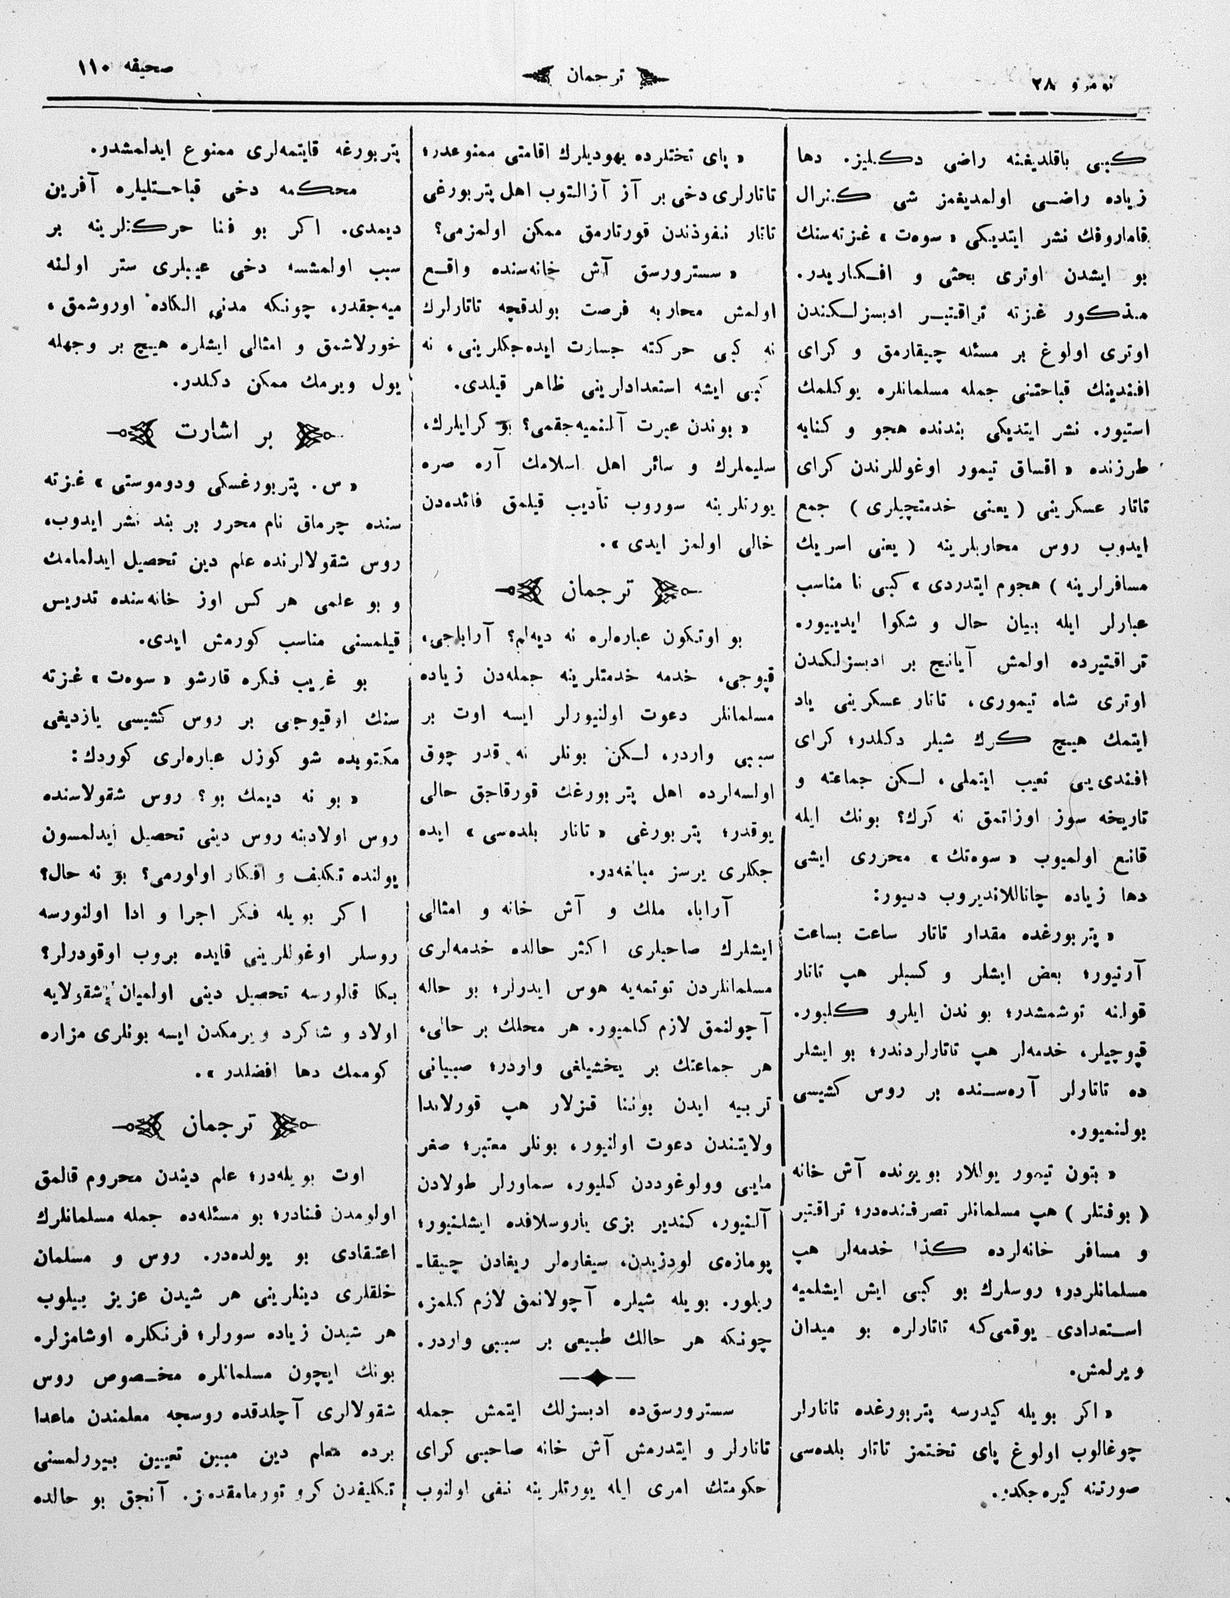 نومرو ۲۸
ترجمان
صحیفه ۱۱۰
كبی باقلدیغینه راضی دكلیز. دها
زیاده راضی اولمدیغمز شی كنرال
قاماروفك نشر ایتدیكی «سوه‌ت» غزته‌سنك
بو ایشدن اوتری بحثی و افكاریدر.
مذكور غزته تراقتیر ادبسزلكندن
اوتری اولوغ بر مسئله چیقارمق و كرای
افندینك قباحتنی جمله مسلمانلره یوكلمك
استیور. نشر ایتدیكی بندنده هجو و كنایه
طرزنده «اقساق تیمور اوغوللرندن كرای
تاتار عسكرینی (یعنی خدمتچیلری) جمع
ایدوب روس محاربلرینه (یعنی اسریك
مسافرلرینه) هجوم ایتدردی» كبی نا مناسب
عبارلر ایله بیان حال و شكوا ایدییور.
تراقتیرده اولمش آیانچ بر ادبسزلكدن
اوتری شاه تیموری، تاتار عسكرینی یاد
ایتمك هیچ كرك شیلر دكلدر؛ كرای
افندی‌یی تعیب ایتملی، لكن جماعته و
تاریخه سوز اوزاتمق نه كرك؟ بونك ایله
قانع اولمیوب «سوه‌تك» محرری ایشی
دها زیاده چاناللاندیروب دییور:
«پتربورغده مقدار تاتار ساعت بساعت
آرتیور؛ بعض ایشلر و كسبلر هپ تاتار
قولنه توشمشدر؛ بوندن ایلرو كلیور.
قپوچیلر، خدمه‌لر هپ تاتارلردندر؛ بو ایشلر
ده تاتارلر آره‌سنده بر روس كشیسی
بولنمیور.
«بتون تیمور یوللار بویونده آش خانه
(بوفتلر) هپ مسلمانلر تصرفنده‌در؛ تراقتیر
و مسافر خانه‌لرده كذا خدمه‌لر هپ
مسلمانلردر؛ روسلرك بو كبی ایش ایشلمیه
استعدادی یوقمی‌كه تاتارلره بو میدان
ویرلمش.
«اكر بویله كیدرسه پتربورغده تاتارلر
چوغالوب اولوغ پای تختمز تاتار بلده‌سی
صورتنه كیره‌جكدر.
«پای تختلرده یهودیلرك اقامتی ممنوعدر؛
تاتارلری دخی بر آز آزالتوب اهل پتربورغی
تاتار نفوذندن قورتارمق ممكن اولمزمی؟
«سسترورسق آش خانه‌سنده واقع
اولمش محاربه فرصت بولدقچه تاتارلرك
نه كبی حركته جسارت ایده‌جكلرینی، نه
كبی ایشه استعدادارینی ظاهر قیلدی.
«بوندن عبرت آلنمیه‌جقمی؟ بو كرایلرك،
سلیملرك و سائر اهل اسلامك آره صره
یورتلرینه سوروب تأدیب قیلمق فائده‌دن
خالی اولمز ایدی».
ترجمان
بو اوتكون عباره‌لره نه دیه‌لم؟ آرابه‌جی،
قپوجی، خدمه خدمتلرینه جمله‌دن زیاده
مسلمانلر دعوت اولنیورلر ایسه اوت بر
سببی واردر، لكن بونلر نه قدر چوق
اولسه‌لرده اهل پتربورغك قورقاجق حالی
یوقدر؛ پتربورغی «تاتار بلده‌سی» ایده
جكلری یرسز مبالغه‌در.
آرابا، ملك و آش خانه و امثالی
ایشلرك صاحبلری اكثر حالده خدمه‌لری
مسلمانلردن توتمه‌یه هوس ایدرلر؛ بو حاله
آچولنمق لازم كلمیور. هر محلك بر حالی،
هر جماعتك بر یخشیلغی واردر؛ صبیانی
تربیه ایدن بوننا قزلار هپ قورلاندا
ولایتندن دعوت اولنیور، بونلر معتبر؛ صغر
مایی وولوغوددن كلیور، سماورلر طولادن
آلنیور، كندیر بزی یاروسلافده ایشلنیور؛
پومازه‌ی لودزیدن، سیغاره‌لر ریغادن چیقا-
ریلور. بویله شیلره آچولانمق لازم كلمز،
چونكه هر حالك طبیعی بر سببی واردر.
سسترورسق‌ده ادبسزلك ایتمش جمله
تاتارلر و ایتدرمش آش خانه صاحبی كرای
حكومتك امری ایله یورتلرینه نفی اولنوب
پتربورغه قایتمه‌لری ممنوع ایدلمشدر.
محكمه دخی قباحتلیلره آفرین
دیمدی. اكر بو فنا حركتلرینه بر
سبب اولمشسه دخی عیبلری ستر اولنه
میه‌جقدر، چونكه مدنی الكاده اوروشمق،
خورلاشمق و امثالی ایشلره هیچ بر وجهله
یول ویرمك ممكن دكلدر.
بر اشارت
«س. پتربورغسكی ودوموستی» غزته
سنده چرماق نام محرر بر بند نشر ایدوب،
روس شقولالرنده علم دین تحصیل ایدلمامك
و بو علمی هر كس اوز خانه‌سنده تدریس
قیلمسنی مناسب كورمش ایدی.
بو غریب فكره قارشو «سوه‌ت» غزته
سنك اوقیوجی بر روس كشیسی یازدیغی
مكتوبده شو كوزل عباره‌لری كوردك:
«بو نه دیمك بو؟ روس شقولاسنده
روس اولادینه روس دینی تحصیل ایدلمسون
یولنده تكلیف و افكار اولورمی؟ بو نه حال؟
اكر بویله فكر اجرا و ادا اولنورسه
روسلر اوغوللرینی قایده بروب اوقودرلر؟
بكا قالورسه تحصیل دینی اولمیان شقولایه
اولاد و شاكرد ویرمكدن ایسه بونلری مزاره
كوممك دها افضلدر».
ترجمان
اوت بویله‌در؛ علم دیندن محروم قالمق
اولومدن فنادر؛ بو مسئله‌ده جمله مسلمانلرك
اعتقادی بو یولده‌در. روس و مسلمان
خلقلری دینلرینی هر شیدن عزیز بیلوب
هر شیدن زیاده سورلر؛ فرنكلره اوشامزلر.
بونك ایچون مسلمانلره مخصوص روس
شقولالری آچلدقده روسجه معلمندن ماعدا
برده معلم دین مبین تعیین بیورلمسنی
تكلیفدن كرو تورمامقده‌یز. آنجق بو حالده